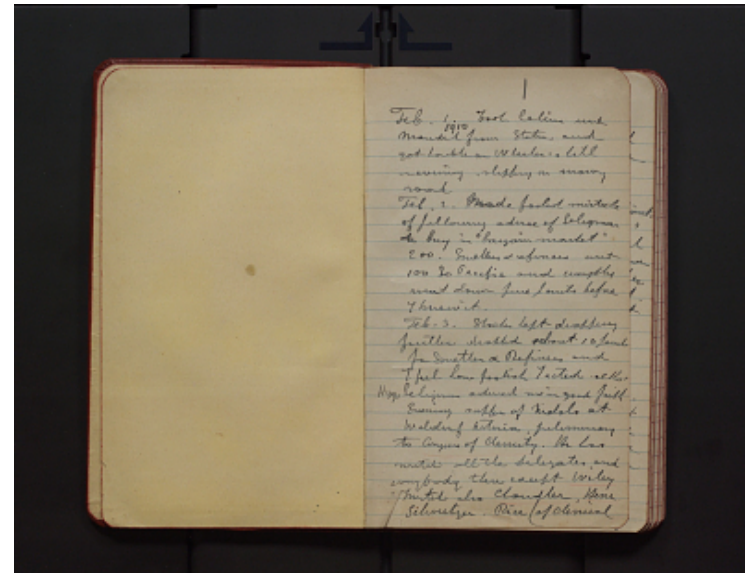 1
Feb. 1. 1910 Took Celine and
from Station and
got double on Wheeler's hill
slippery on snowy
road
Feb. 2. Made foolish mistake
of following advise of Seligman
to buy in "bargain market"
200. Smelters & refiners and
100 So Pacific and
went down five points before
I knew it.
Feb. 3. Stocks kept dropping
further about 10 points
for Smelter & Refiners and
I feel how foolish I acted altho
Seligman advised me in good faith.
Evening supper of Nichols at
Waldorf Astoria, preliminary
to Congress of Chemistry. He has
invited all the delegates and
everybody then except Wiley
Invited also Chandler, Hane
Schweitzer. Dice (of Chemical